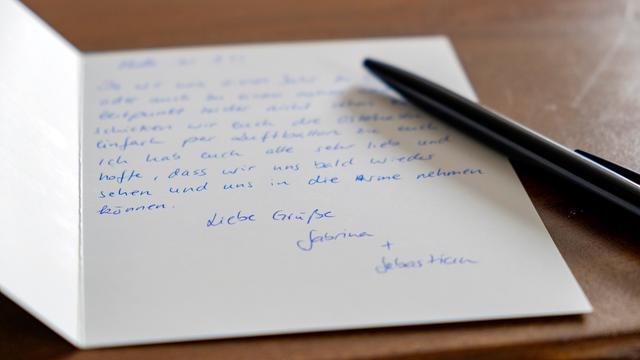 oder auch zu einem
Zeitpunkt leider nicht sehen
schicken wir euch die
einfach per Luftballon zu euch
ich hab euch alle sehr lieb und
hoffe, dass wir uns bald wieder
sehen und uns in die Arme nehmen
können.
Liebe Grüße
Sabrina
+
Sebastian